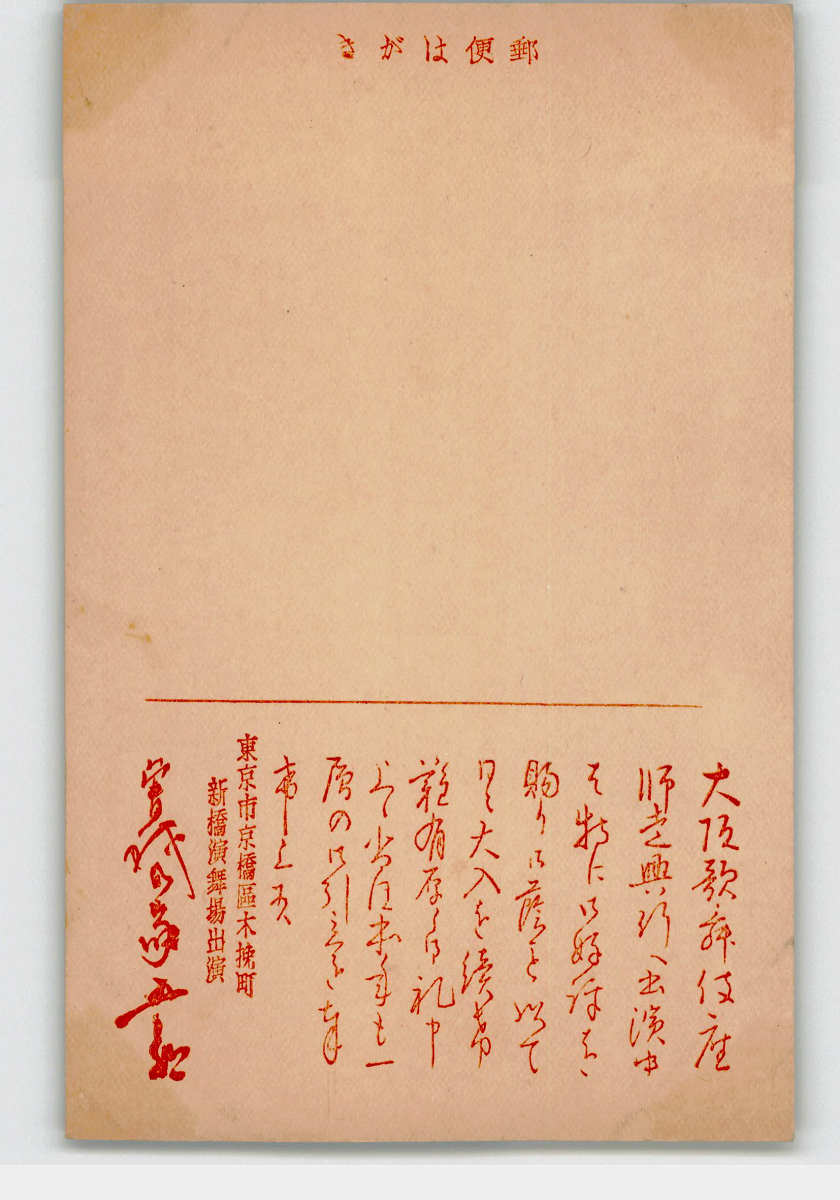 郵便はがき
大阪歌舞伎座
師走興行へ出演中
は特に御好評を
賜り御蔭を以て
日々大入を續け
難有厚く御礼申
上候尚ほ来年も一
層の御引立を奉
希上候
東京市京橋區木挽町
新橋演舞場出演
曾我廼家五郎